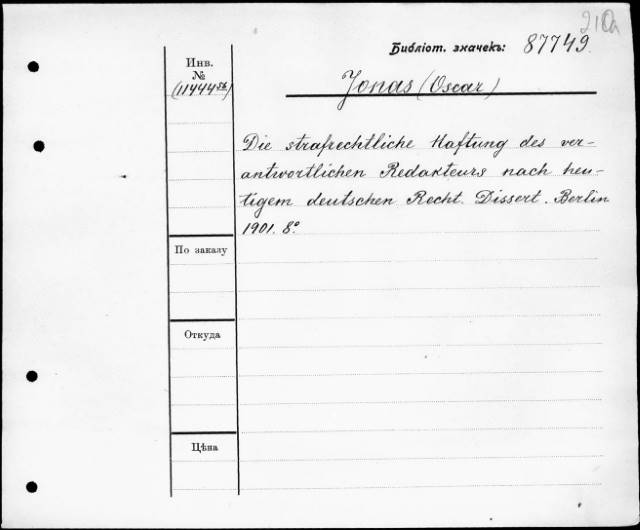 210a
Библіот. значекъ: 87749.
Инв.
№
(11444 56)
Jonas (Oscar)
Die strafrechtliche Haftung des ver-
antwortlichen Redakteurs nach heu-
tigem deutschen Recht. Dissert. Berlin
1901. 8°.
По заказу
Откуда
Цѣна